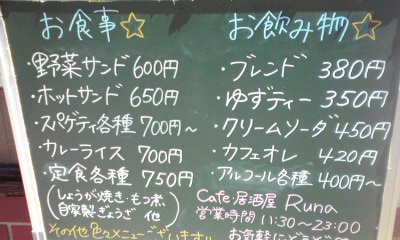 お食事☆
・野菜サンド 600円
・ホットサンド 650円
・スパゲティ各種 700円〜
・カレーライス 700円
・定食各種 750円
(しょうが焼き・もつ煮、
自家製ぎょうざ 他)
その他色々メニューございます!!
お飲み物☆
・ブレンド 380円
・ゆずティー 350円
・クリームソーダ 450円
・カフェオレ 420円
・アルコール各種 400円〜
Cafe・居酒屋 Runa
営業時間 11:30〜23:00
お気軽に